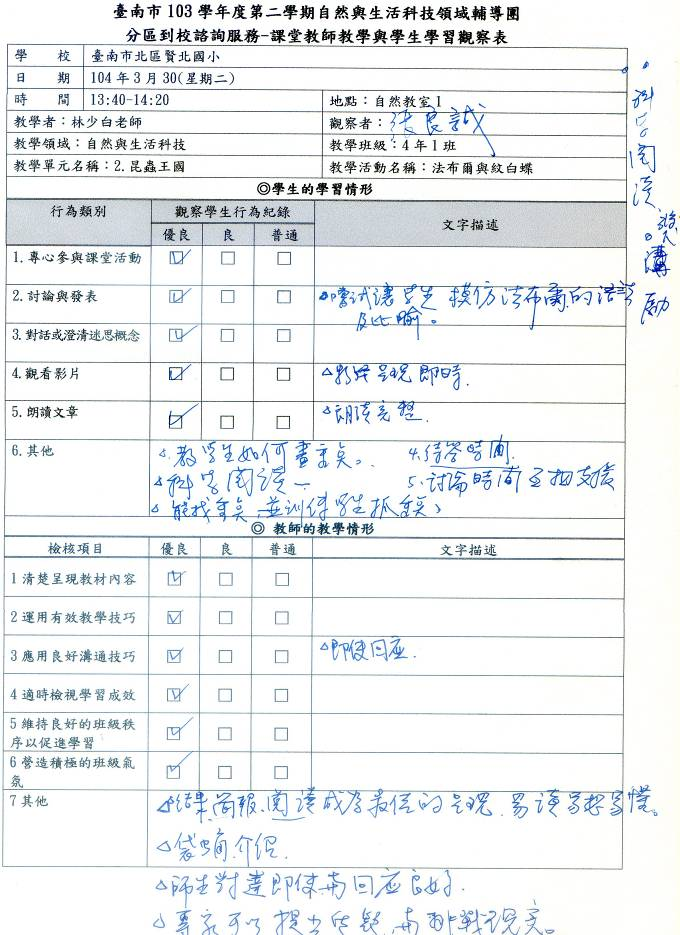 臺南市 103 學年度第二學期自然與生活科技領域輔導團
分區到校諮詢服務-課堂教師教學與學生學習觀察表
學　校 臺南市北區賢北國小
日　期 104 年 3 月 30(星期二)
時　間 13:40-14:20 地點：自然教室 1
教學者：林少白老師 觀察者：張良誠
教學領域：自然與生活科技 教學班級：4 年 1 班
教學單元名稱：2.昆蟲王國 教學活動名稱：法布爾與紋白蝶
科學閱讀
◎學生的學習情形
行為類別 觀察學生行為紀錄 文字描述
優良 良 普通
1.專心參與課堂活動 ☑ □ □
2.討論與發表 ☑ □ □ 嚐試讓學生模仿法布爾的
及比喻。
3.對話或澄清迷思概念 ☑ □ □
4.觀看影片 ☑ □ □ 呈現即時.
5.朗讀文章 ☑ □ □ 朗讀完整.
6.其他 教學生如何畫重點。 4.待答時間.
科學閱讀 5.討論時間互相支援
能找重點,並訓練學生抓重點
◎ 教師的教學情形
檢核項目 優良 良 普通 文字描述
1 清楚呈現教材內容 ☑ □ □
2 運用有效教學技巧 ☑ □ □
3 應用良好溝通技巧 ☑ □ □ △即使回应.
4 適時檢視學習成效 ☑ □ □
5 維持良好的班級秩
序以促進學習 ☑ □ □
6 營造積極的班級氣
氛 ☑ □ □
7 其他 △結果簡報,閱讀成為最佳的呈現,易讀易想易懂。
△袋蛹介紹.
△師生對產即使而回应良好.
△專家可以提出質疑,而挑戰